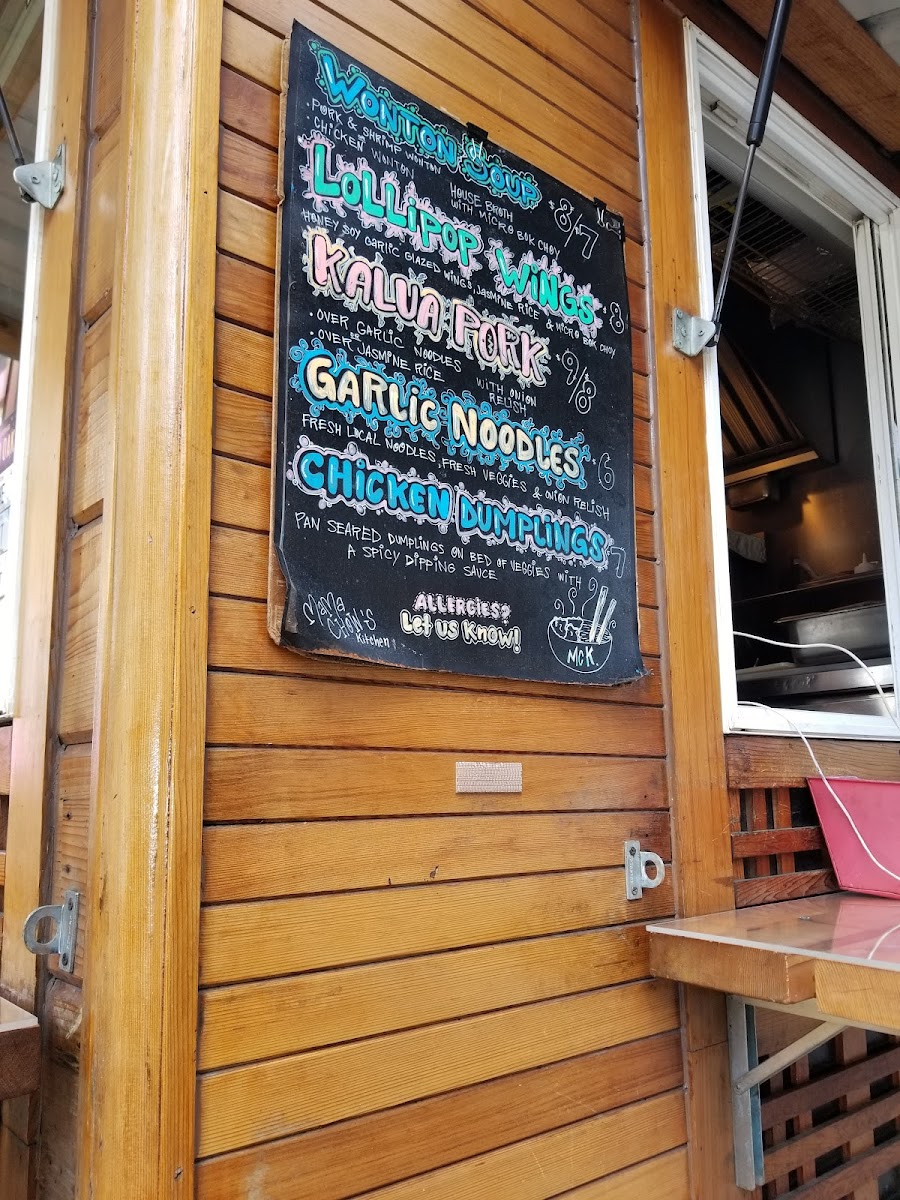 WONTON SOUP
· PORK & SHRIMP WONTON
· CHICKEN WONTON
HOUSE BROTH
WITH MICRO BOK CHOY
$8/7
LOLLIPOP WINGS $8
HONEY SOY GARLIC GLAZED WINGS, JASMINE RICE & MICRO BOK CHOY
KALUA PORK $9/8
· OVER GARLIC NOODLES
· OVER JASMINE RICE
WITH ONION
RELISH
GARLIC NOODLES 6
FRESH LOCAL NOODLES, FRESH VEGGIES & ONION RELISH
CHICKEN DUMPLINGS 7
PAN SEARED DUMPLINGS ON BED OF VEGGIES WITH
A SPICY DIPPING SAUCE
MAMA
CHOW'S
Kitchen
ALLERGIES?
Let us Know!
MCK.